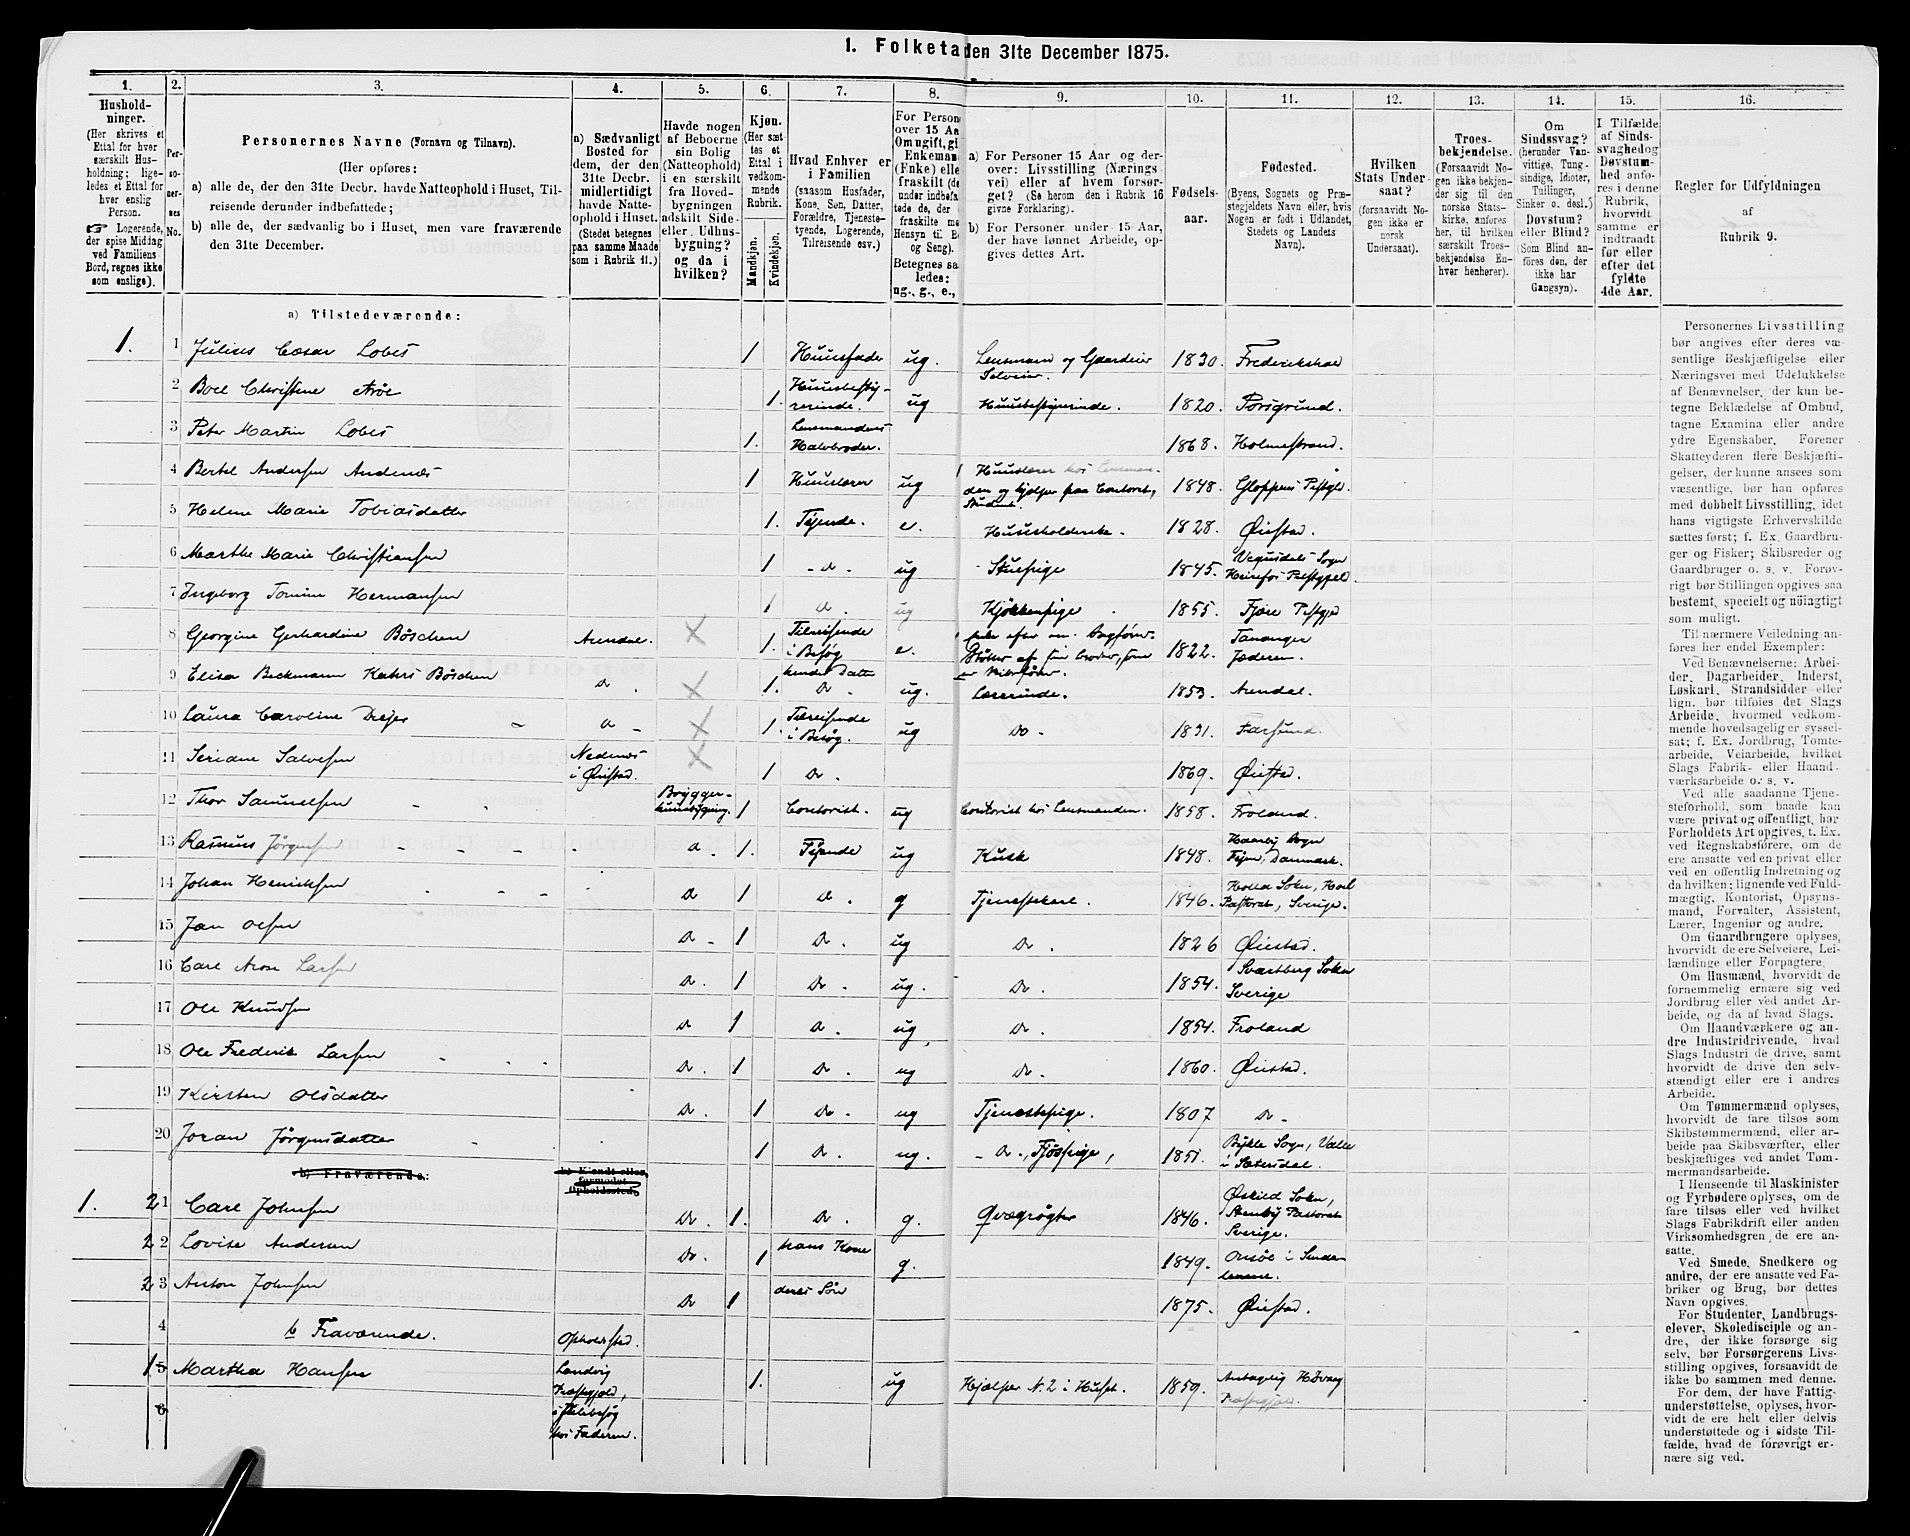 1. Folketa den 31te December 1875.
1. 2. 3. 4. 5. 6. 7. 8. 9. 10. 11. 12. 13. 14. 15. 16.
Hushold-
ninger.
(Her skrives et
Ettal for hver
særskilt Hus-
holdning; lige-
ledes et Ettal for
hver enslig
Person.
☞ Logerende,
der spise Middag
ved Familiens
Bord, regnes ikke
som enslige).
Per-
so-
ner-
nes
No.
Personernes Navne (Fornavn og Tilnavn).
(Her opføres:
a) alle de, der den 31te Decbr. havde Natteophold i Huset, Til-
reisende derunder indbefattede;
b) alle de, der sædvanlig bo i Huset, men vare fraværende
den 31te December.
a) Sædvanligt
Bosted for
dem, der den
31te Decbr.
midlertidigt
havde Natte-
ophold i Huset.
(Stedet betegnes
paa samme Maade
som i Rubrik 11.)
Havde nogen
af Beboerne
sin Bolig
(Natteophold)
i en særskilt
fra Hoved-
bygningen
adskilt Side-
eller Udhus-
bygning?
og da i
hvilken?
Kjøn.
(Her sæt
tes et
Ettal i
vedkom-
mende
Rubrik.
Mandkjøn.
Kvindekjøn.
Hvad Enhver er
i Familien
(saasom Husfader,
Kone, Søn, Datter,
Forældre, Tjeneste-
tyende, Logerende,
Tilreisende osv.)
For Person
over 15 Aa
Om ugift, gi
Enkeman
(Enke) elle
fraskilt (d
under indbefa
tede de, der
fraskilte me
Hensyn til B
og Seng).
Betegnes sa
ledes:
ug., g., e.,
a) For Personer 15 Aar og der-
over: Livsstilling (Nærings
vei) eller af hvem forsør-
get? (Se herom den i Rubrik 16
givne Forklaring).
b) For Personer under 15 Aar,
der have lønnet Arbeide, op-
gives dettes Art.
Fødsels-
aar.
Fødested.
(Byens, Sognets og Præ-
stegjeldets Navn eller, hvis
Nogen er født i Udlandet,
Stedets og Landets
Navn).
Hvilken
Stats Under
saat?
(forsaavidt No-
gen ikke er
norsk
Undersaat).
Troes-
bekjendelse.
(Forsaavidt No-
gen ikke bekjen-
der sig til den
norske Stats-
kirke, anføres
her, til hvilken
særskilt Troes-
bekjendelse En-
hver henhører).
Om
Sindssvag?
(herunder Van-
vittige, Tung-
sindige, Idioter,
Tailinger,
Sinker o. desl.)
Døvstum?
eller Blind?
(Som Blind an-
føres den, der
ikke har
Gangsyn).
I Tilfælde
af Sinds-
svaghed og
Døvstum-
hed anfø-
res i denne
Rubrik,
hvorvidt
samme er
indtraadt
før eller
efter det
fyldte
4de Aar.
Regler for Udfyldningen
af
Rubrik 9.
a) Tilstedeværende:
1. 1 Julius Cæsar Lobes 1 Huusfader ug. Lensmand og Gaardeier Selveier. 1830. Frederikshal
2 Boel Christine Arøe 1. Huusbesty-
rerinde. ug Huusbestyrerinde. 1820. Porsgrund.
3 Peter Martin Lobes 1. Lensmandens
Halvbroder. 1868. Holmestrand.
4 Bertel Andersen Andenæs 1 Huuslærer ug Huuslærer hos Lensman-
den og hjelper paa Contoret,
Student. 1848. Gloppens Prstgld.
5 Helene Marie Tobiasdatter 1. Tjende. e. Huusholderske. 1828. Øiestad.
6 Marthe Marie Christiensen 1 - d. ug Stuepige 1845. Vegusdals Sogn
Herrefos Præstgjeld
7 Ingeborg Tomine Hermansen 1 d. ug Kjøkkenpige 1855. Fjære Pstgjd
8 Georgine Gerhardine Böschen Arendal. X 1. Tilreisende
i Besøg e. 1822. Tananger
Jæderen.
9 Elisa Beckmann Kahrs Böschen d. X 1. hendes Datter
d. ug. Lærerinde. 1853. Arendal.
10 Laura Caroline Dreyer d - X 1. Tilreisende
i Besøg. ug do - 1831. Farsund.
11 Seriane Salvesen Nedenes
i Øiestad. X 1 d. 1869. Øiestad.
12 Thor Samuelsen Brygger-
huusbygning. 1 Contorist. ug Contorist hos Lensmanden. 1858. Froland.
13 Rasmus Jørgensen d. 1. Tjende ug Kusk 1848. Haarby Sogn
Fyen, Danmark.
14 Johan Henriksen d 1 d. g Tjenestekarl. 1846. Sverige.
15 Jan Olsen d - 1 d. ug d. 1826 Øiestad.
16 Carl Aron Larsen d. 1 d - ug. d. 1854. Svartberg Sokn
Sverige
17 Ole Knudsen d 1 d. ug d. 1854. Froland
18 Ole Frederik Larsen d. 1 d. ug d. 1860. Øiestad.
19 Kirsten Olsdatter d. 1 d. ug Tjenestepige. 1807 d -
20 Joran Jørgensdatter 1 d. ug. - d -, Fjøspige, 1851. Bykle Sogn, Valle
i Sætersdal.
b) Fraværende: b) Kjendt eller
formodet
Opholdssted.
1. 2 1 Carl Johnsen d. 1. d. g. Qvægrøgter 1846. Øskild Sokn,
Stenby Pastorat
Sverige.
2 2 Lovise Andersen do. 1 hans Kone g. 1849. Onsøe i Smaa-
lenene.
2 3 Anton Johnsen d 1 deres Søn 1875. Øiestad.
4 b Fraværende. Opholdssted.
1 5 Martha Hansen Landvig
Præstgjeld,
i Julebesøg
hos Faderen. 1. ug Hjælper N. 2 i Huset. 1859.
6
Personernes Livsstilling
bør angives efter deres væ-
sentlige Beskjæftigelse eller
Næringsvei med Udelukkelse
af Benævnelser, der kun be-
tegne Beklædelse af Ombud,
tagne Examina eller andre
ydre Egenskaber. Forener
Skatteyderen flere Beskjæfti-
gelser, der kunne ansees som
væsentlige, bør han opføres
med dobbelt Livsstilling, idet
hans vigtigste Erhvervskilde
sættes først; f. Ex. Gaardbru-
ger og Fisker; Skibsreder og
Gaardbruger o. s. v. Forøv-
rigt bør Stillingen opgives saa
bestemt, specielt og nöiagtigt
som muligt.
Til nærmere Veiledning an-
føres her endel Exempler:
Ved Benævnelserne: Arbei-
der, Dagarbeider, Inderst,
Løskarl, Strandsidder eller
lign. bør tilføies det Slags
Arbeide, hvormed vedkom-
mende hovedsagelig er syssel-
sat; f. Ex. Jordbrug, Tomte-
arbeide, Veiarbeide, hvilket
Slags Fabrik- eller Haand-
værksarbeide o. s. v.
Ved alle saadanne Tjene-
steforhold, som baade kan
være privat og offentligt, bør
Forholdets Art opgives, t. Ex.
ved Regnskabsførere, om de
ere ansatte ved en privat eller
ved en offentlig Indretning og
da hvilken; lignende ved Fuld-
mægtig, Kontorist, Opsyns-
mand, Forvalter, Assistent,
Lærer, Ingeniør og andre.
Om Gaardbrugere oplyses,
hvorvidt de ere Selveiere, Lei-
lændinge eller Forpagtere.
Om Husmænd, hvorvidt de
fornemmelig ernære sig ved
Jordbrug eller ved andet Ar-
beide, og da af hvad Slags.
Om Haandværkere og an-
dre Industridrivende, hvad
Slags Industri de drive, samt
hvorvidt de drive den selv-
stændigt eller ere i andres
Arbeide.
Om Tømmermænd oplyses,
hvorvidt de fare tilsøs som
Skibstømmermænd, eller ar-
beide paa Skibsværfter, eller
beskjæftiges ved andet Tøm-
mermandsarbeide.
I Henseende til Maskinister
og Fyrbødere oplyses, om de
fare tilsøs eller ved hvilket
Slags Fabrikdrift eller anden
Virksomhedsgren de ere an-
satte.
Ved Smede, Snedkere og
andre, der ere ansatte ved Fa-
briker og Brug, bør dettes
Navn opgives.
For Studenter, Landbrugs-
elever, Skoledisciple og an-
dre, der ikke forsørge sig
selv, bør Forsørgerens Livs-
stilling opgives, forsaavidt de
ikke bo sammen med denne.
For dem, der have Fattig-
understøttelse, oplyses, hvor-
vidt de ere helt eller delvis
understøttede og i sidste Til-
fælde, hvad de forøvrigt er-
nære sig ved.